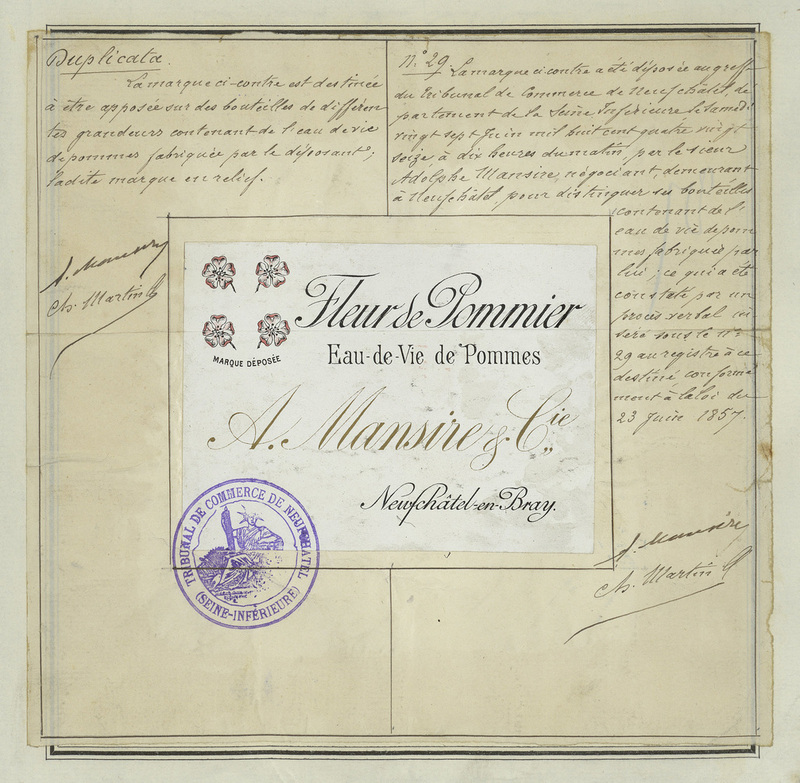 Duplicata.
La marque ci-contre est destinée
à être apposée sur des bouteilles de différen
tes grandeurs contenant de l'eau de vie
de pommes fabriquée par le déposant;
ladite marque en relief.
A. Mansire
Ch. Martin
N.° 29. La marque ci contre a été déposée au greffe
du Tribunal de Commerce de Neufchâtel, dé
partement de la Seine Inférieure le Samedi
vingt sept Juin mil huit cent quatre vingt
seize, à dix heures du matin, par le sieur
Adolphe Mansire, négociant demeurant
à Neufchâtel, pour distinguer ses bouteilles
contenant de l'
eau de vie de pom
mes fabriquée par
lui; ce qui a été
constaté par un
procès verbal in
séré sous le n°
29 au registre à ce
destiné conformé
ment à la loi du
23 Juin 1857.
A. Mansire
Ch. Martin
Fleur de Pommier
MARQUE DÉPOSÉE
Eau-de-Vie de Pommes
A. Mansire & Cie
Neufchâtel-en-Bray.
TRIBUNAL DE COMMERCE DE NEUFCHATEL
(SEINE-INFÉRIEURE)